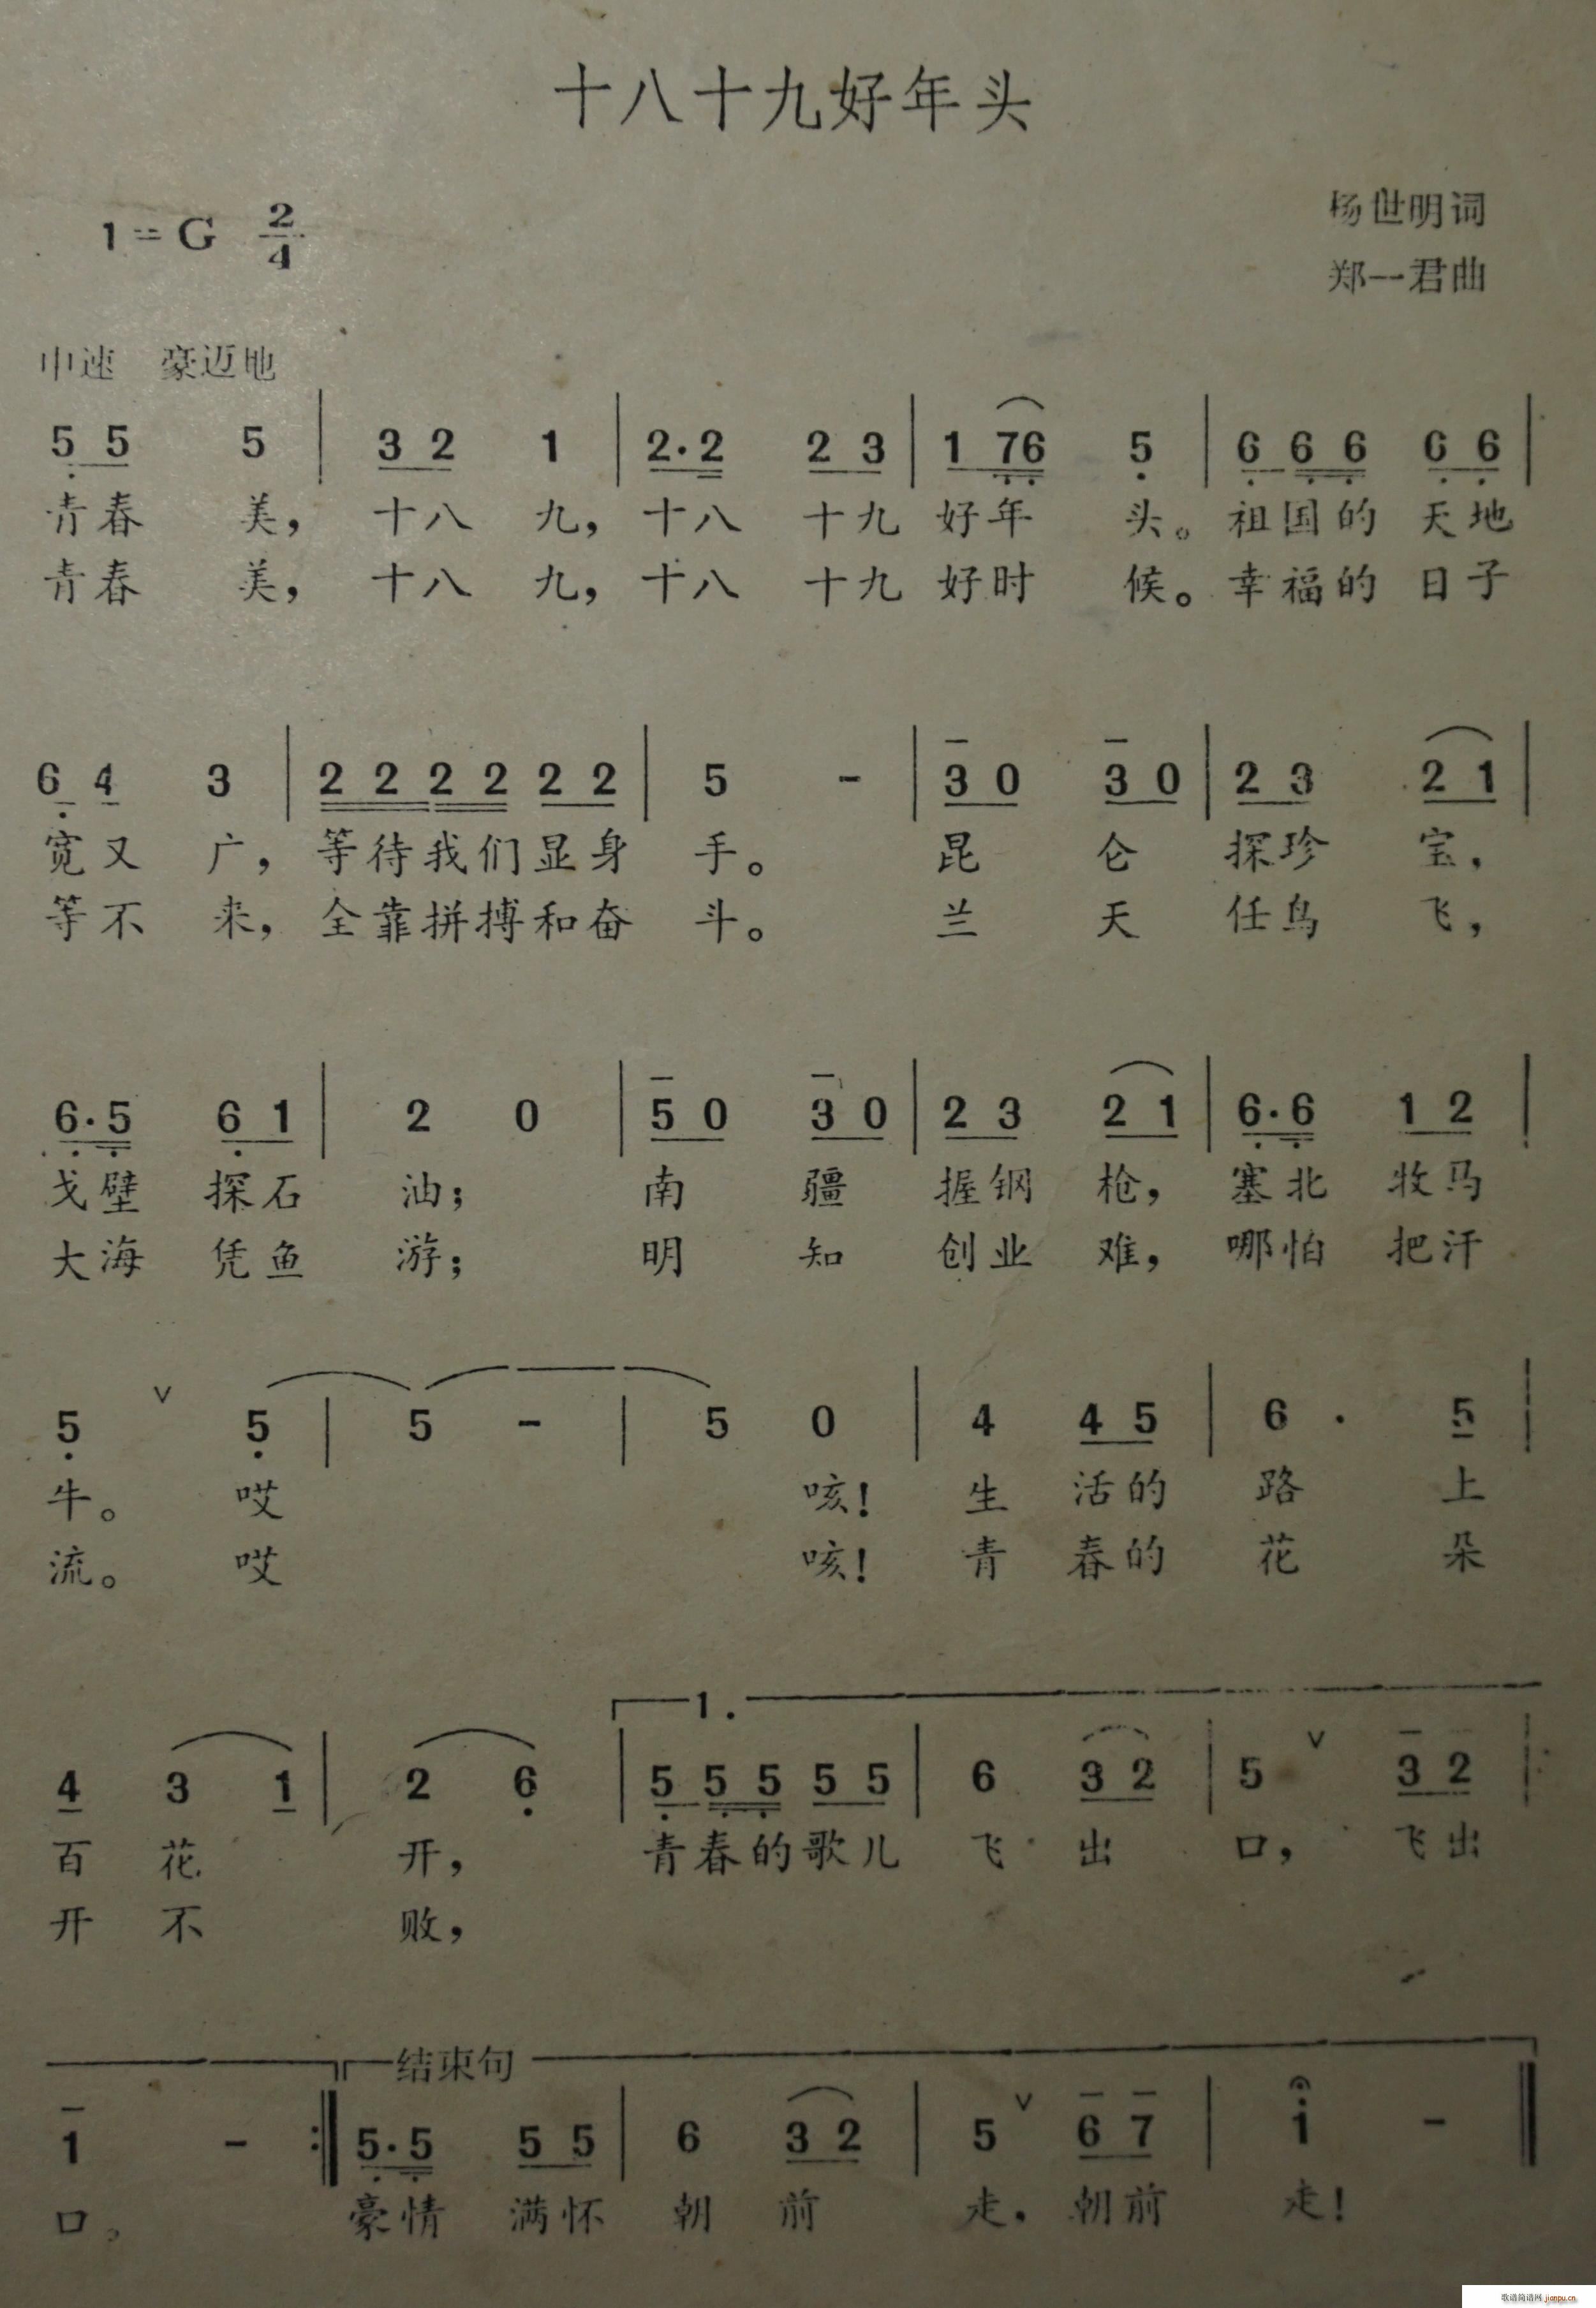 十八十九好年头
1=G 2/4
杨世明词
郑一君曲
中速 豪迈地
5 5 5 | 3 2 1 | 2·2 2 3 | 1 76 5 | 6 6 6 6 6 |
青春 美, 十八 九, 十八 十九 好年 头。 祖国的 天地
青春 美, 十八 九, 十八 十九 好时 候。 幸福的 日子
6 4 3 | 2 2 2 2 2 2 | 5 - | 3 0 3 0 | 2 3 2 1 |
宽又 广, 等待我们显身 手。 昆 仑 探珍 宝,
等不 来, 全靠拼搏和奋 斗。 兰 天 任鸟 飞,
6·5 6 1 | 2 0 | 5 0 3 0 | 2 3 2 1 | 6·6 1 2 |
戈壁 探石 油; 南 疆 握钢 枪, 塞北 牧马
大海 凭鱼 游; 明 知 创业 难, 哪怕 把汗
5 ∨ 5 | 5 - | 5 0 | 4 4 5 | 6 · 5 |
牛。 哎 咳! 生 活的 路 上
流。 哎 咳! 青 春的 花 朵
1.
4 3 1 | 2 6 | 5 5 5 5 5 | 6 3 2 | 5 ∨ 3 2 |
百 花 开, 青春的歌儿 飞 出 口, 飞出
开 不 败,
结束句
1 - :‖ 5·5 5 5 | 6 3 2 | 5 ∨ 6 7 | 1 - ‖
口。 豪情 满怀 朝 前 走, 朝前 走!
歌谱简谱网 jianpu.cn